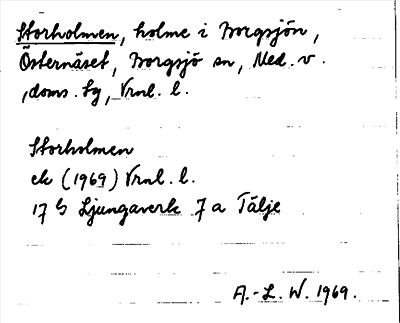 Storholmen, holme i Borgsjön,
Östernäset, Borgsjö sn, Med. v.
doms. tg, Vrnl. l.
Storholmen
ek (1969) Vrnl. l.
17 G Ljungaverk 7 a Tälje
A.-L. W. 1969.